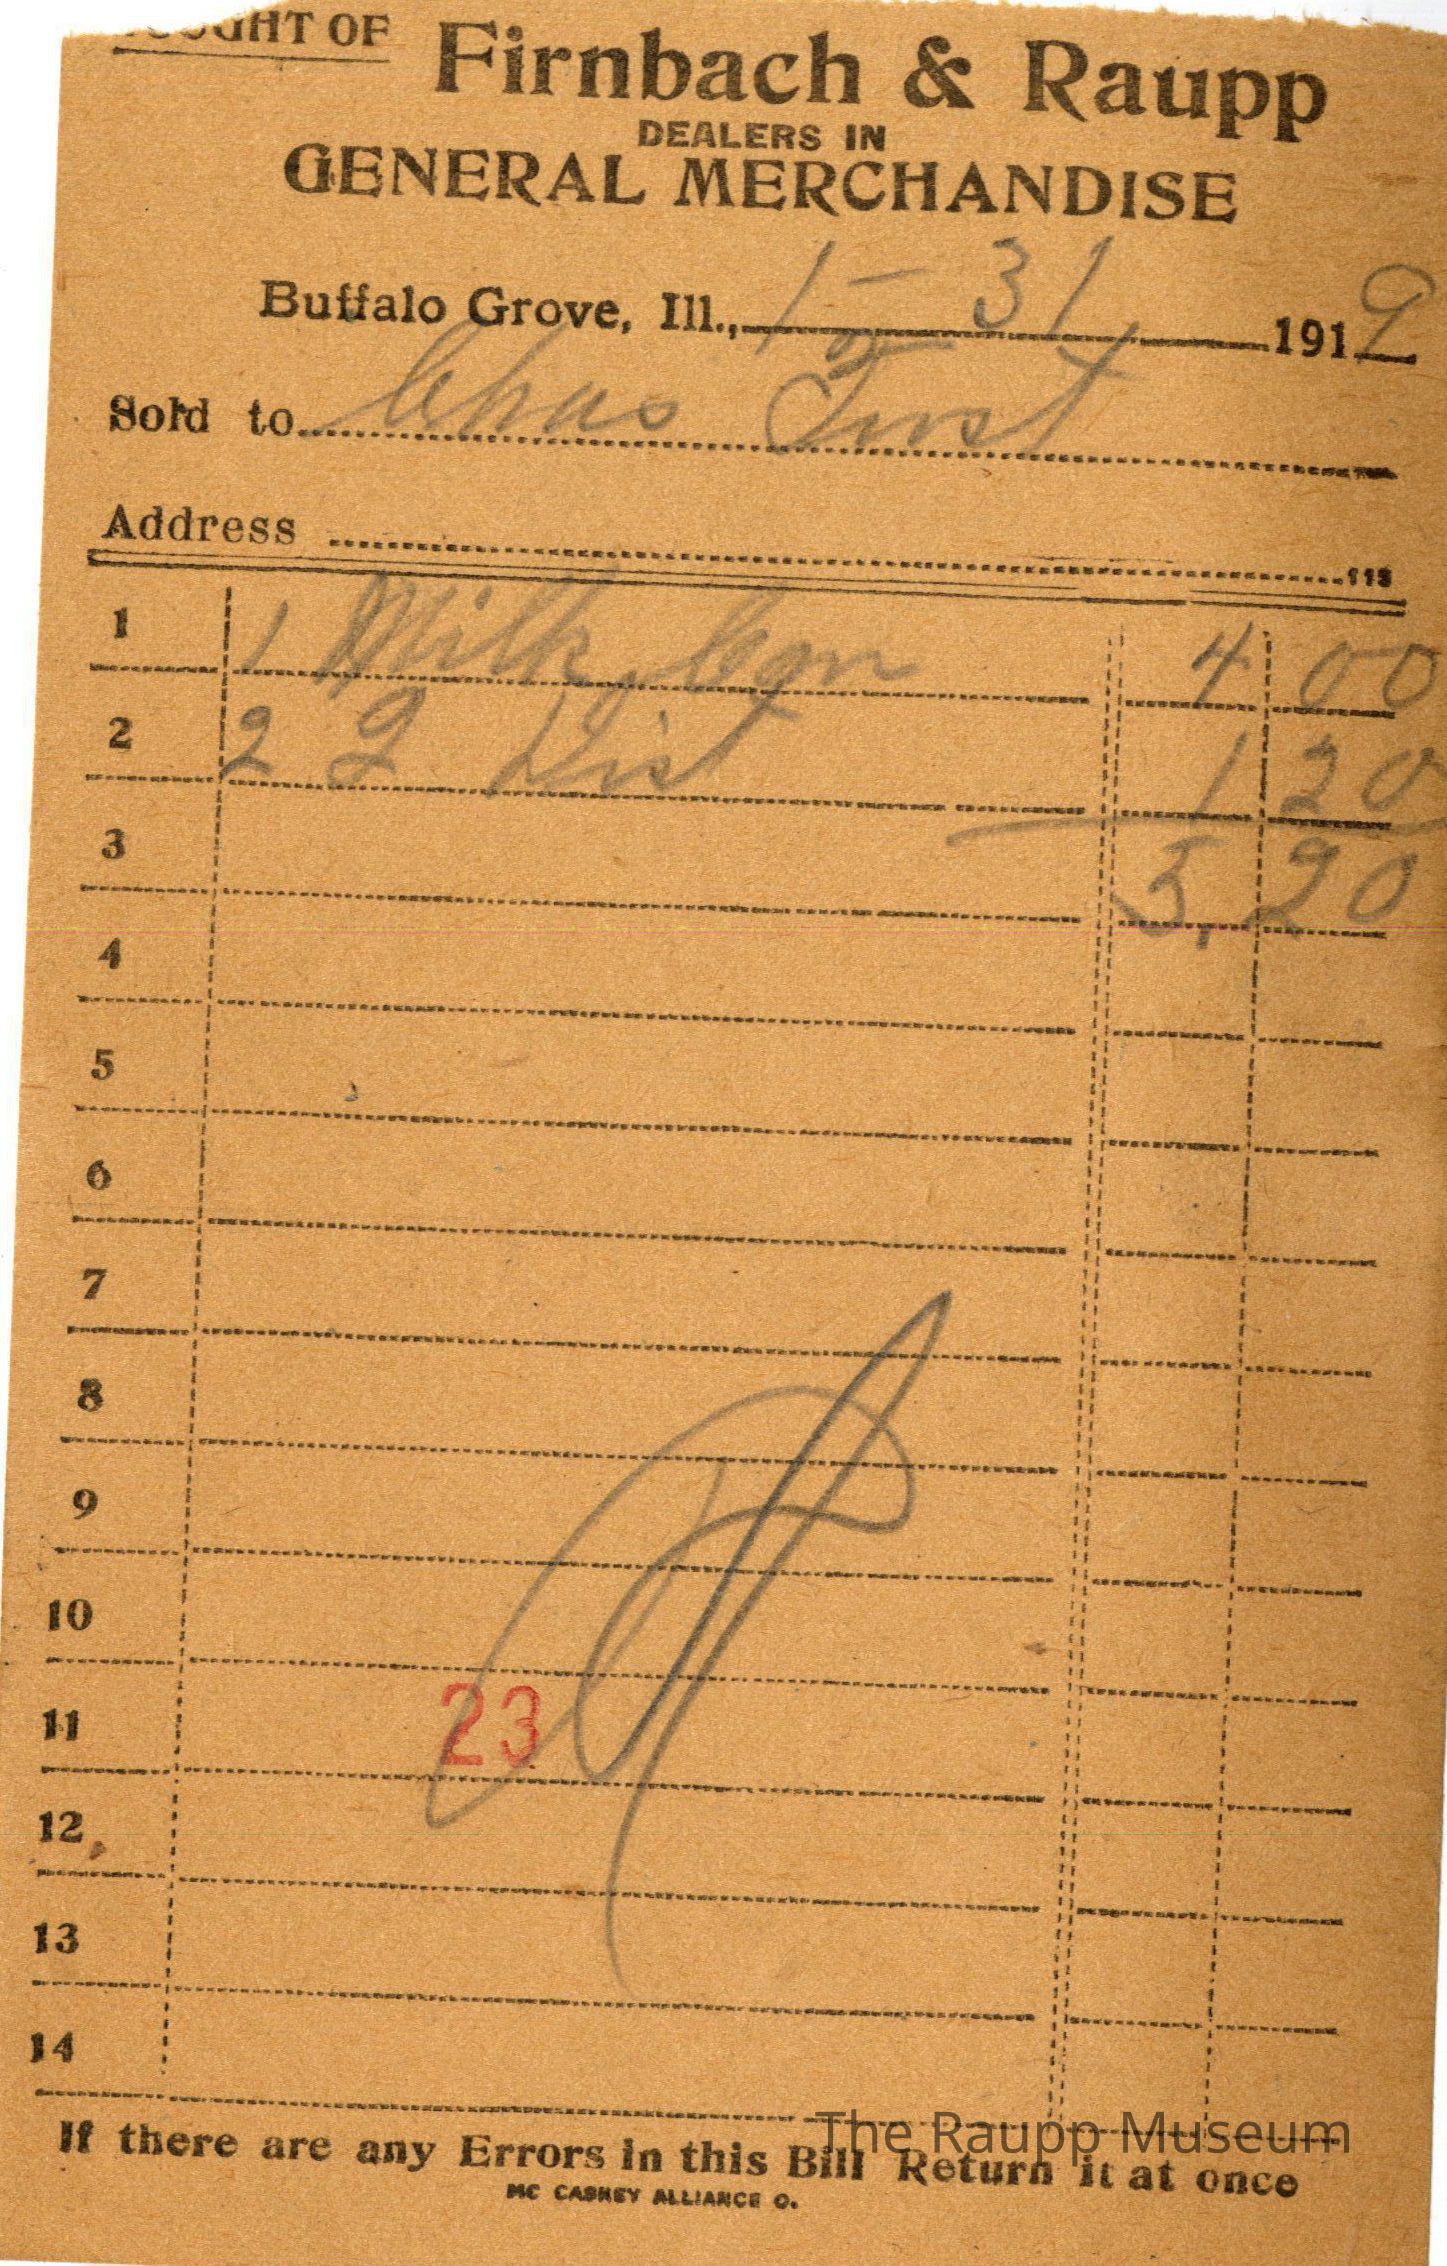 OUGHT OF
Firnbach & Raupp
DEALERS IN
GENERAL MERCHANDISE
Buffalo Grove, Ill., 1 - 31 1919
Sold to Chas
Address
113
1 1 Milk Can 4 00
2 2 1 20
3 5,20
4
5
6
7
8
9
10
11 23
12
13
14
The Raupp Museum
If there are any Errors in this Bill Return it at once
MC CASKEY ALLIANCE O.